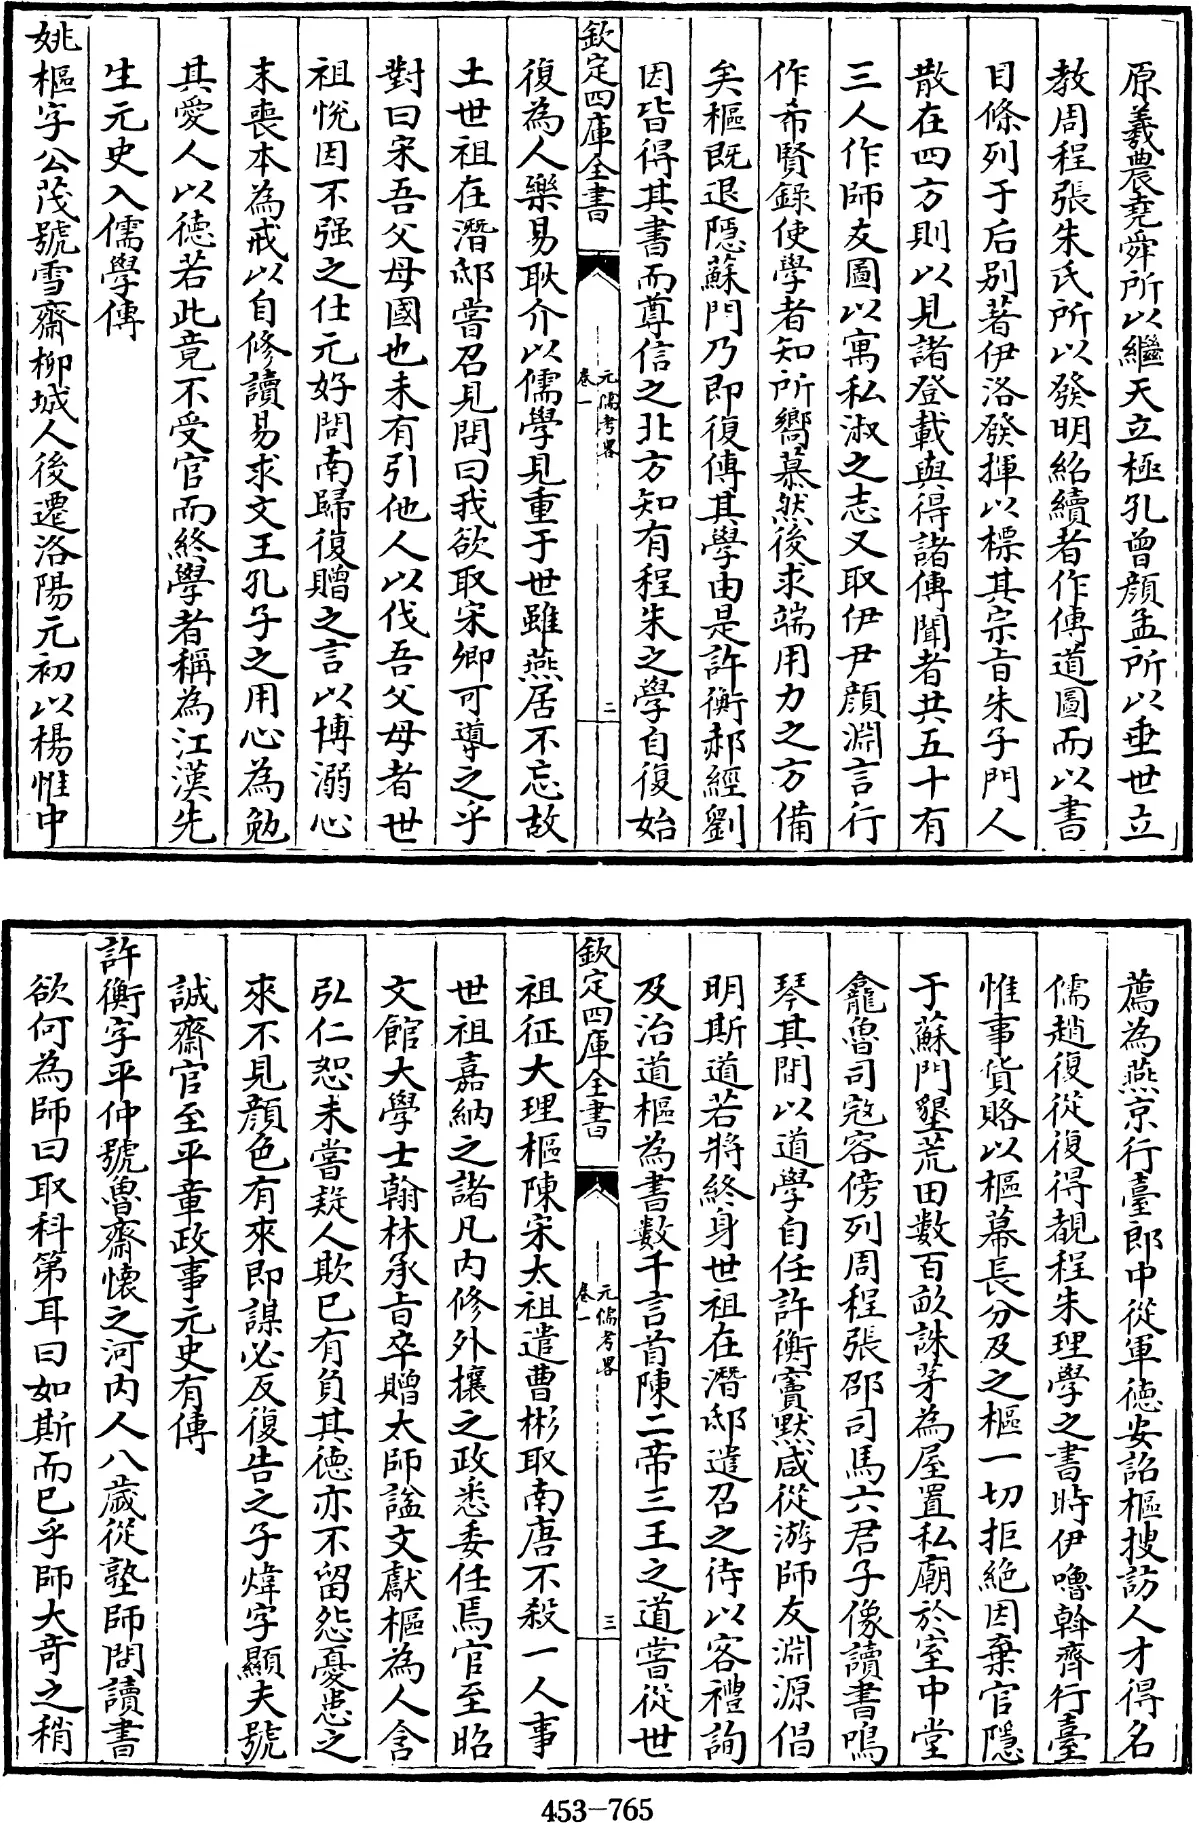 原羲農堯舜所以繼天立極孔曾顏孟所以垂世立
教周程張朱氏所以發明紹續者作傳道圖而以書
目條列于后别著伊洛發揮以標其宗旨朱子門人
散在四方則以見諸登載與得諸傳聞者共五十有
三人作師友圖以寓私淑之志又取伊尹顏淵言行
作希賢錄使學者知所嚮慕然後求端用力之方備
矣樞既退隱蘇門乃即復傳其學由是許衡郝經劉
因皆得其書而尊信之北方知有程朱之學自復始
欽定四庫全書
元儒考畧
卷一
二
復為人樂易耿介以儒學見重于世雖燕居不忘故
土世祖在潛邸嘗召見問曰我欲取宋卿可導之乎
對曰宋吾父母國也未有引他人以伐吾父母者世
祖悅因不强之仕元好問南歸復贈之言以博溺心
末喪本為戒以自修讀易求文王孔子之用心為勉
其愛人以德若此竟不受官而終學者稱為江漢先
生元史入儒學傳
姚樞字公茂號雪齋柳城人後遷洛陽元初以楊惟中
薦為燕京行臺郎中從軍德安詔樞搜訪人才得名
儒趙復從復得覩程朱理學之書時伊嚕斡齊行臺
惟事貨賂以樞幕長分及之樞一切拒絕因棄官隱
于蘇門墾荒田數百畝誅茅為屋置私廟於室中堂
龕魯司寇容傍列周程張邵司馬六君子像讀書鳴
琴其間以道學自任許衡竇默咸從游師友淵源倡
明斯道若將終身世祖在潛邸遣召之待以客禮詢
及治道樞為書數千言首陳二帝三王之道嘗從世
欽定四庫全書
元儒考畧
卷一
三
祖征大理樞陳宋太祖遣曹彬取南唐不殺一人事
世祖嘉納之諸凡内修外攘之政悉委任焉官至昭
文館大學士翰林承旨卒贈太師諡文獻樞為人含
弘仁恕未嘗疑人欺已有負其德亦不留怨憂患之
來不見顏色有來即謀必反復告之子煒字顯夫號
誠齋官至平章政事元史有傳
許衡字平仲號魯齋懷之河内人八歲從塾師問讀書
欲何為師曰取科第耳曰如斯而已乎師大奇之稍
453-765